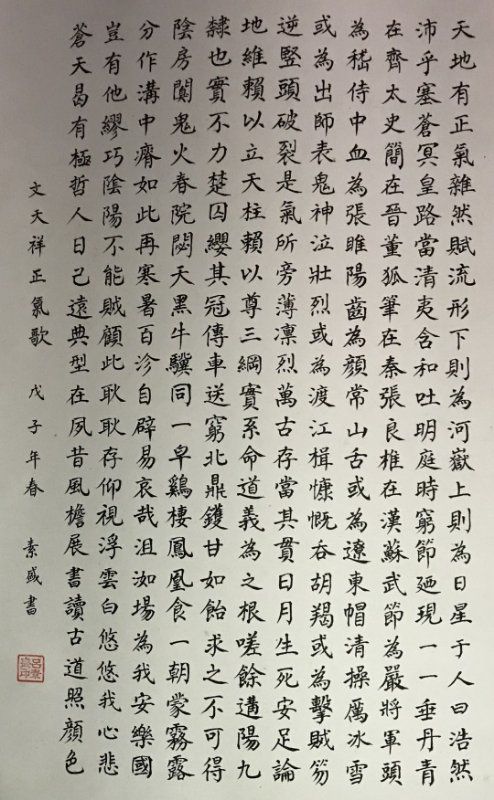 天地有正氣雜然賦流形下則為河嶽上則為日星于人曰浩然
沛乎塞蒼冥皇路當清夷含和吐明庭時窮節廼現一一垂丹青
在齊太史簡在晉董狐筆在秦張良椎在漢蘇武節為嚴將軍頭
為嵇侍中血為張睢陽齒為顏常山舌或為遼東帽清操厲冰雪
或為出師表鬼神泣壯烈或為渡江楫慷慨吞胡羯或為擊賊笏
逆豎頭破裂是氣所旁薄凛烈萬古存當其貫日月生死安足論
地維賴以立天柱賴以尊三綱實系命道義為之根嗟餘遘陽九
隸也實不力楚囚纓其冠傳車送窮北鼎鑊甘如飴求之不可得
陰房闃鬼火春院閟天黑牛驥同一皁鷄棲鳳凰食一朝蒙霧露
分作溝中瘠如此再寒暑百沴自辟易哀哉沮洳場為我安樂國
豈有他繆巧陰陽不能賊顧此耿耿存仰視浮雲白悠悠我心悲
蒼天曷有極哲人日已遠典型在夙昔風檐展書讀古道照顏色
文天祥正氣歌 戊子年春 素盛書